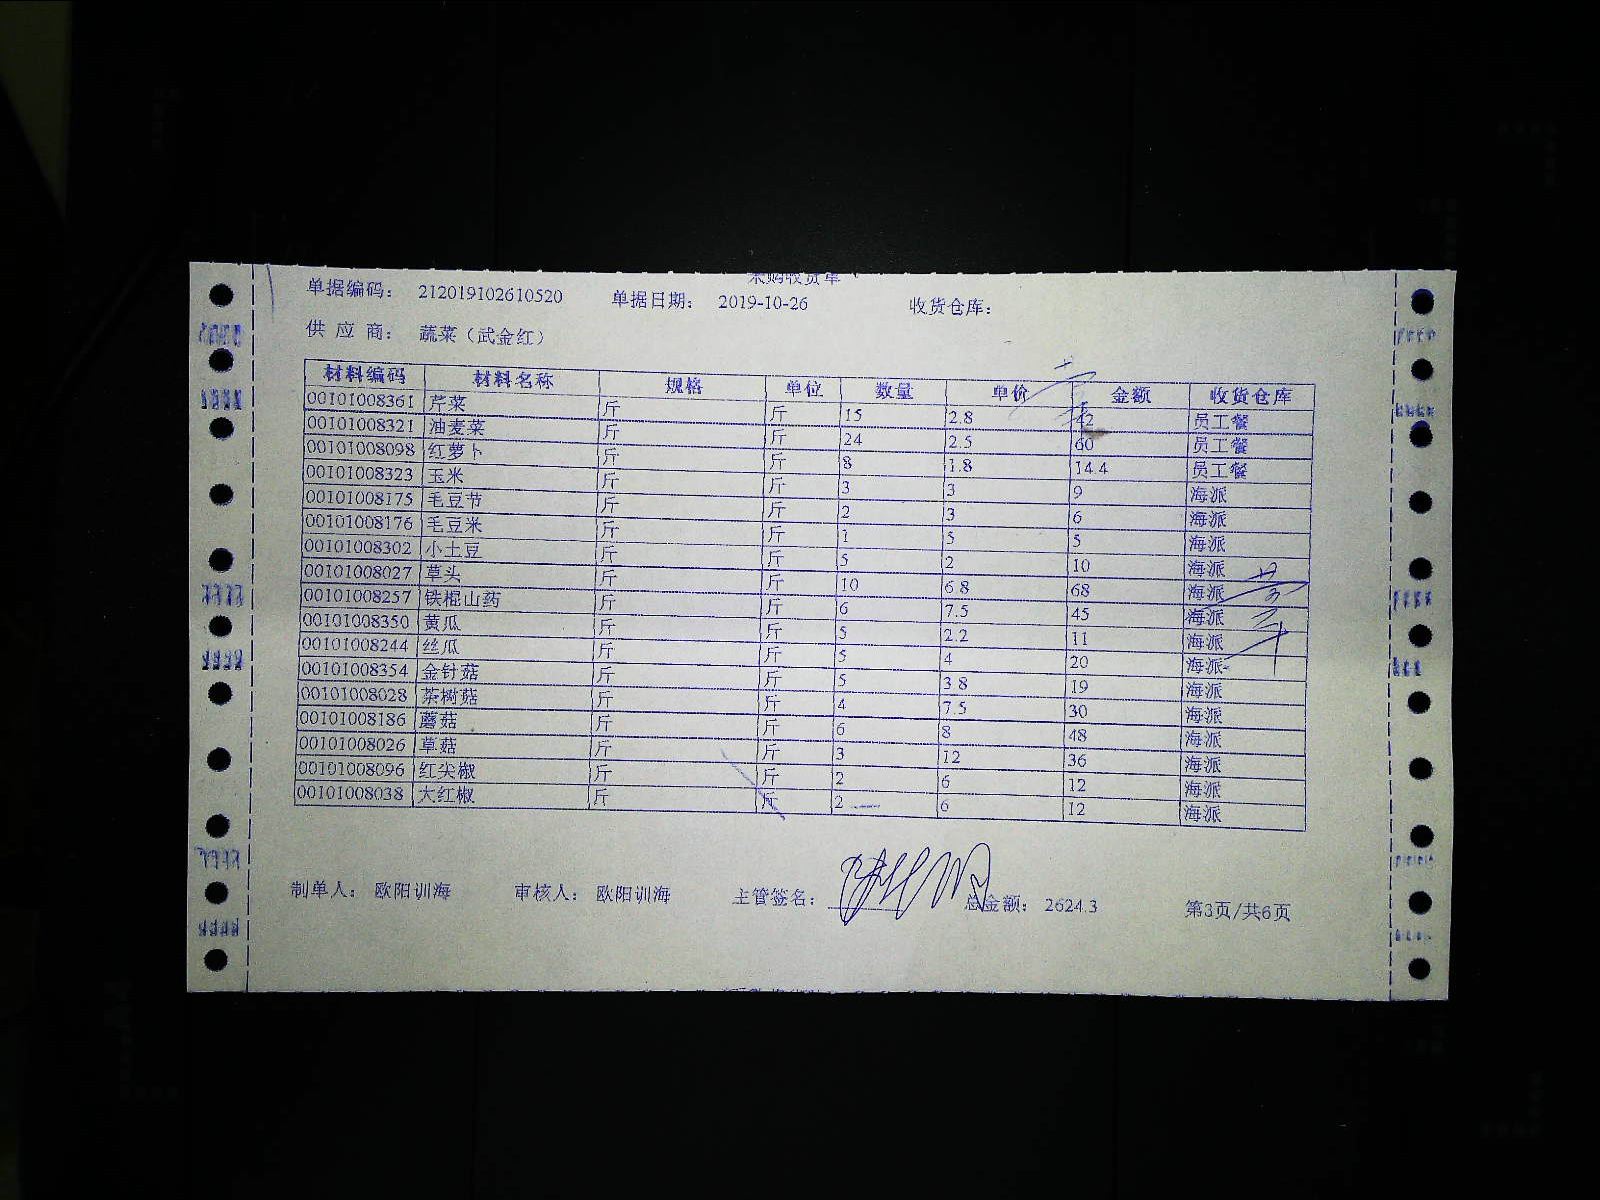 采购收货单
单据编码： 212019102610520 单据日期： 2019-10-26 收货仓库：
供 应 商： 蔬菜（武金红）
材料编码 材料名称 规格 单位 数量 单价 金额 收货仓库
00101008361 芹菜 斤 斤 15 2.8 42 员工餐
00101008321 油麦菜 斤 斤 24 2.5 60 员工餐
00101008098 红萝卜 斤 斤 8 1.8 14.4 员工餐
00101008323 玉米 斤 斤 3 3 9 海派
00101008175 毛豆节 斤 斤 2 3 6 海派
00101008176 毛豆米 斤 斤 1 5 5 海派
00101008302 小土豆 斤 斤 5 2 10 海派
00101008027 草头 斤 斤 10 6.8 68 海派
00101008257 铁棍山药 斤 斤 6 7.5 45 海派
00101008350 黄瓜 斤 斤 5 2.2 11 海派
00101008244 丝瓜 斤 斤 5 4 20 海派
00101008354 金针菇 斤 斤 5 3.8 19 海派
00101008028 茶树菇 斤 斤 4 7.5 30 海派
00101008186 蘑菇 斤 斤 6 8 48 海派
00101008026 草菇 斤 斤 3 12 36 海派
00101008096 红尖椒 斤 斤 2 6 12 海派
00101008038 大红椒 斤 斤 2 6 12 海派
制单人： 欧阳训海 审核人： 欧阳训海 主管签名： 总金额： 2624.3 第3页/共6页